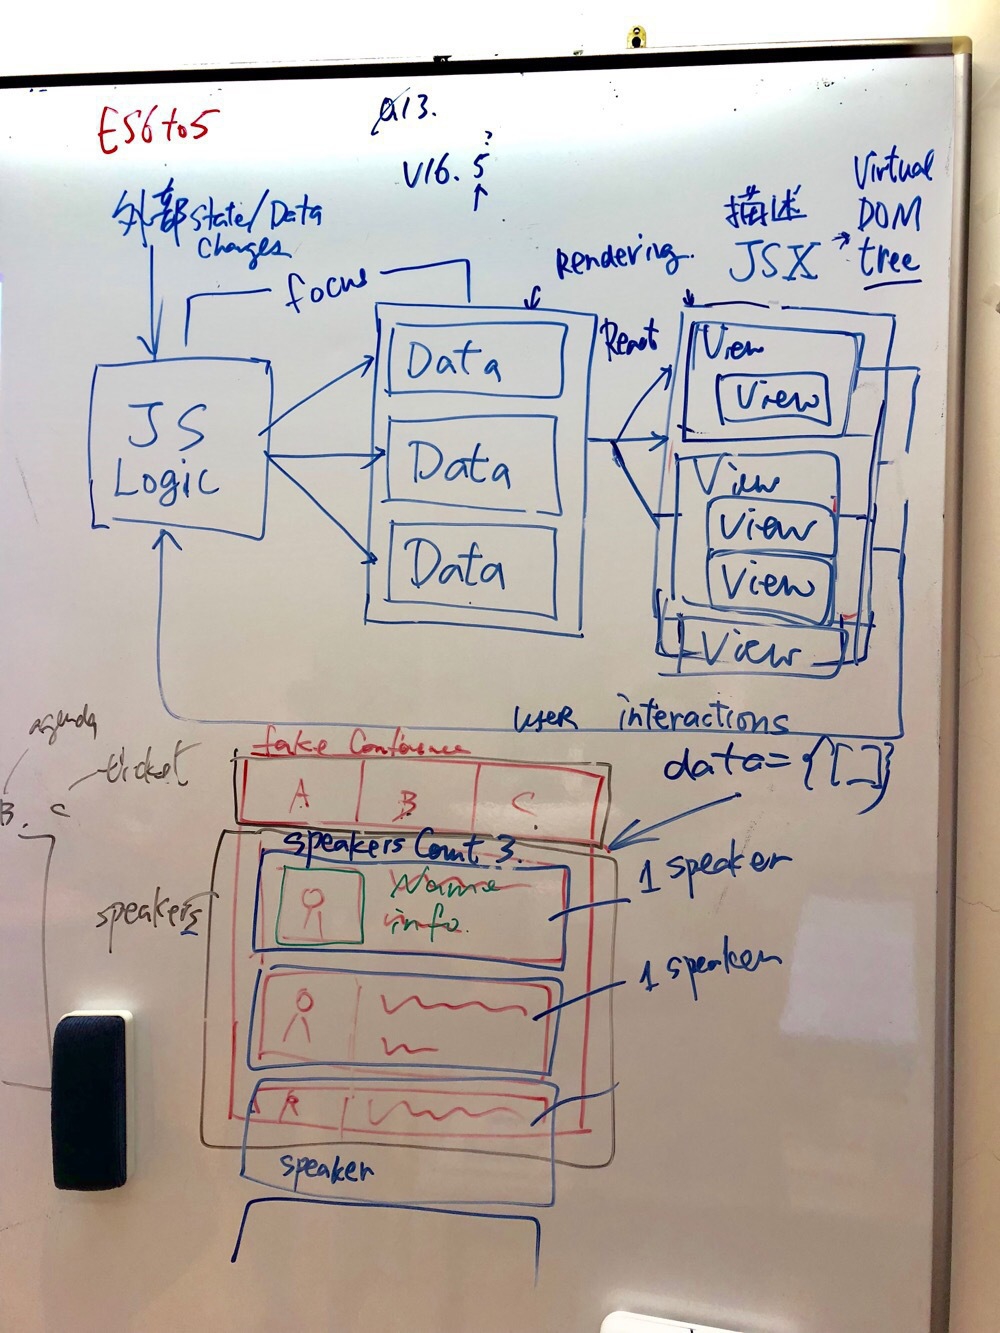 ES6to5
v16.5?
外部 State/Data
Changes
focus
Rendering.
描述
JSX
Virtual
DOM
tree
React
JS
Logic
Data
Data
Data
View
View
View
View
View
View
user interactions
agenda
ticket
B. C
fake Conference
A
B
C
data={[]}
speakers Count 3.
speakers
Name
info.
1 speaker
1 speaker
speaker